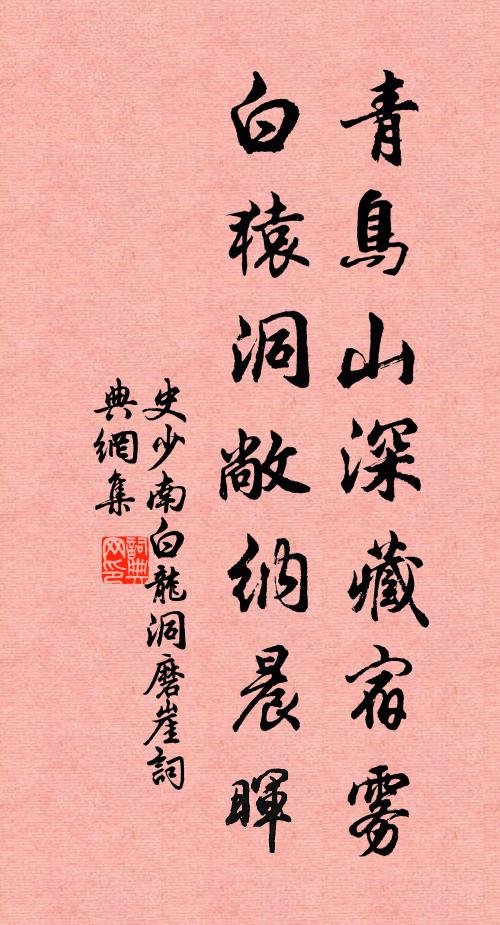 青鳥山深藏宿雾
白猿洞敞纳晨暉
史少南白龍洞磨崖詞
典網集
詞典
网印